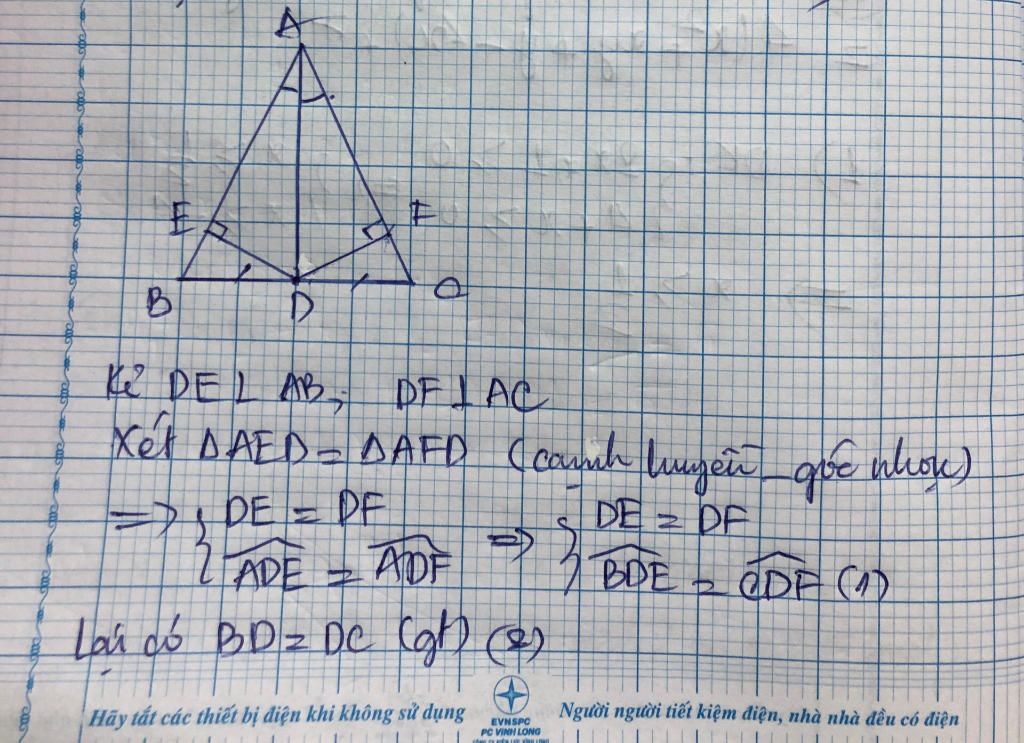 A
E
F
B
D
C
Kẻ DE ⊥ AB, DF ⊥ AC
Xét ΔAED = ΔAFD (cạnh huyền_góc nhọn)
=> { DE = DF => { DE = DF
\widehat{ADE} = \widehat{ADF} \widehat{BDE} = \widehat{CDF} (1)
Lại có BD = DC (gt) (2)
Hãy tắt các thiết bị điện khi không sử dụng
EVNSPC
PC VINH LONG
Người người tiết kiệm điện, nhà nhà đều có điện